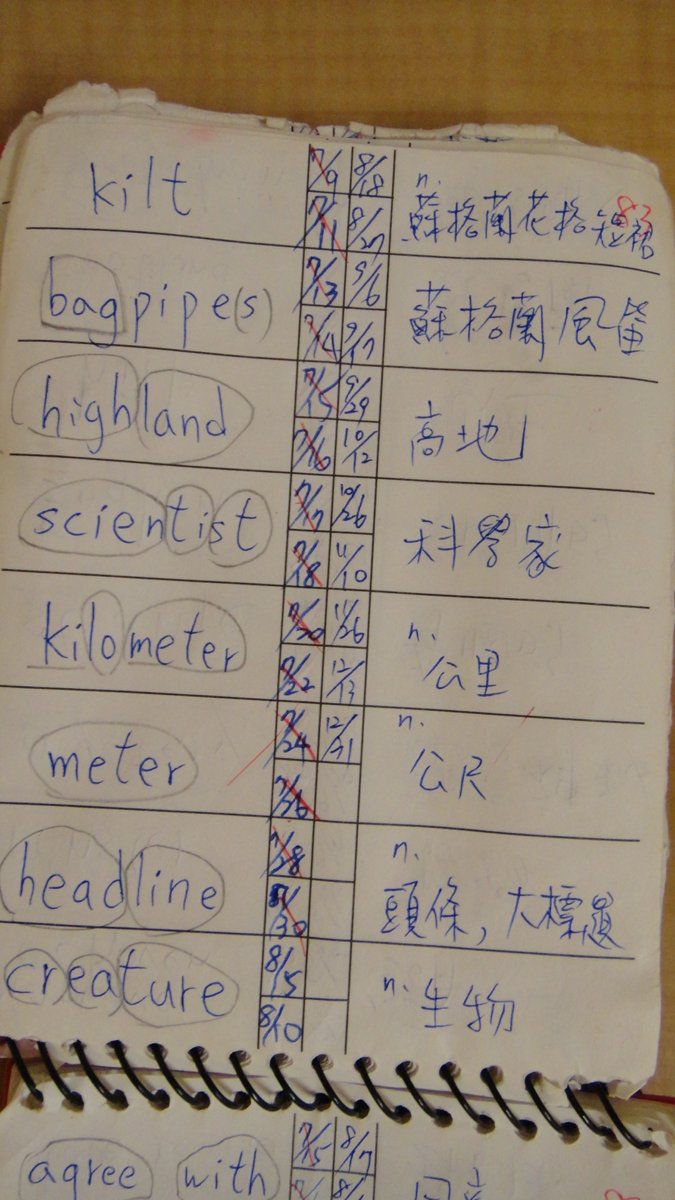 kilt 7/9 8/18 n. 蘇格蘭花格短裙 83
7/11 8/27
bagpipe(s) 7/13 9/6 蘇格蘭風笛
7/14 9/17
highland 7/15 9/29 高地
7/16 10/12
scientist 7/17 10/26 科學家
7/18 11/10
kilometer 7/20 11/26 n. 公里
7/22 12/13
meter 7/24 12/31 n. 公尺
7/26
headline 7/28 n. 頭條,大標題
7/30
creature 8/5 n. 生物
8/10
agree with 7/15 8/17